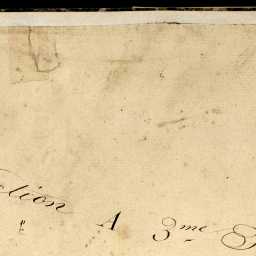 ction A 3me